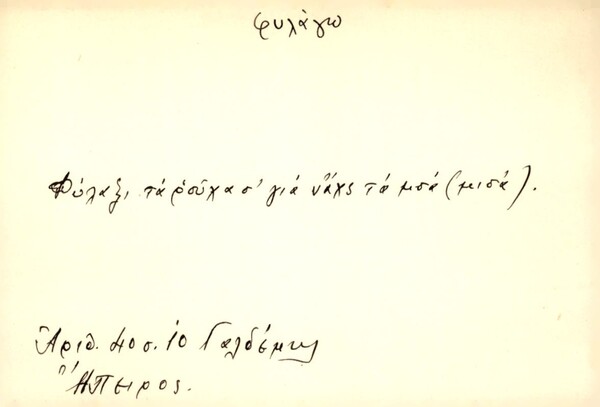 φυλάγω
Φύλαξι τά ροῦχα σ' γιά νἄχς τά μσά (μισά).
Ἀριθ. 40 σ. 10 Γαλδέμης
Ἤπειρος.